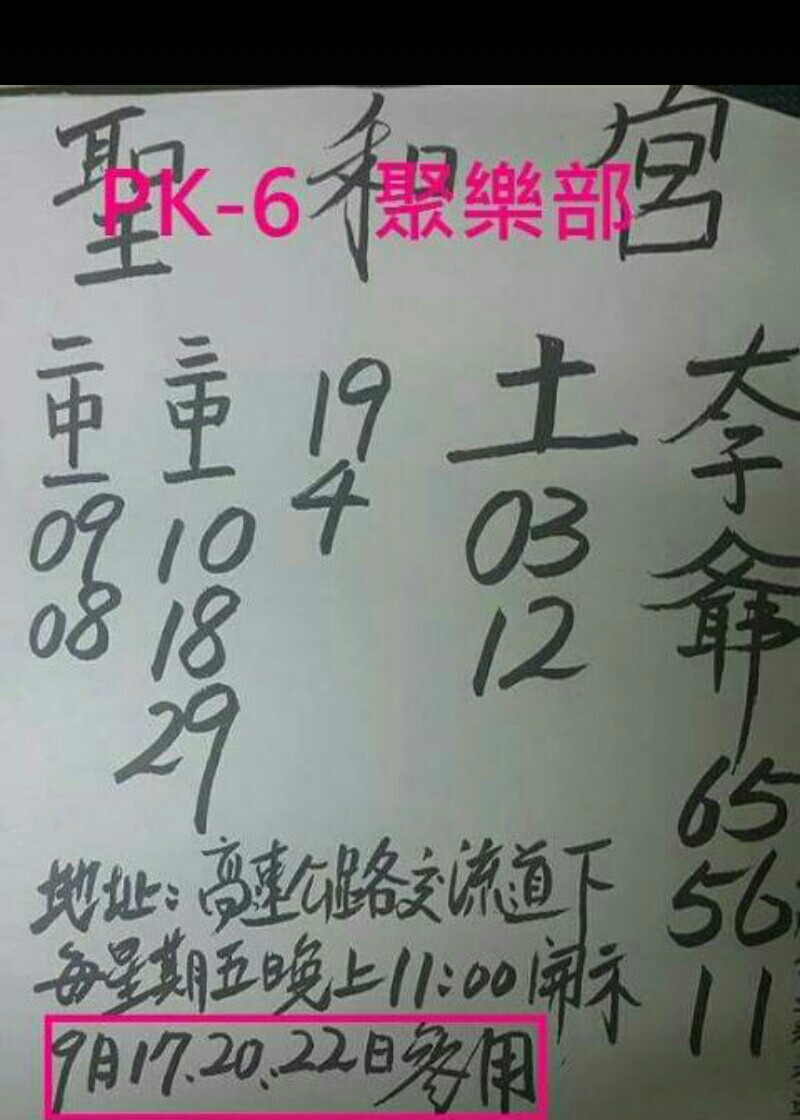 聖和宮
PK-6 聚樂部
太子爺
65
56
11
土
03
12
19
4
三中一
10
18
29
二中一
09
08
地址:高速公路交流道下
每星期五晚上11:00開示
9月17.20.22日參用